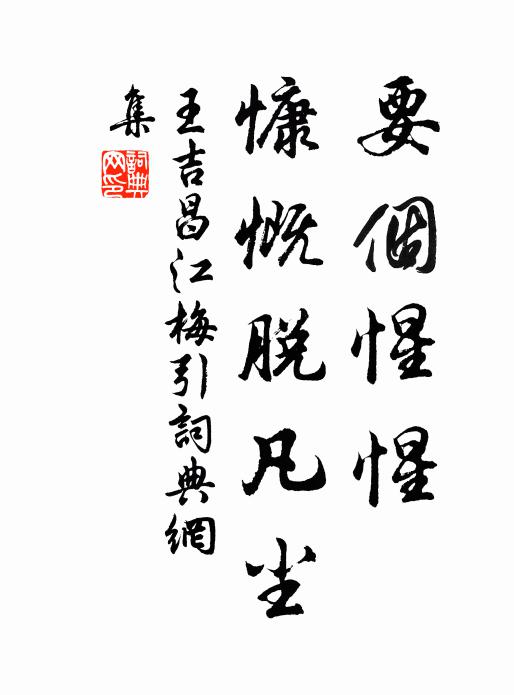 要個惺惺
慷慨脱凡尘
王吉昌江梅引詞典網
集
詞典
网印